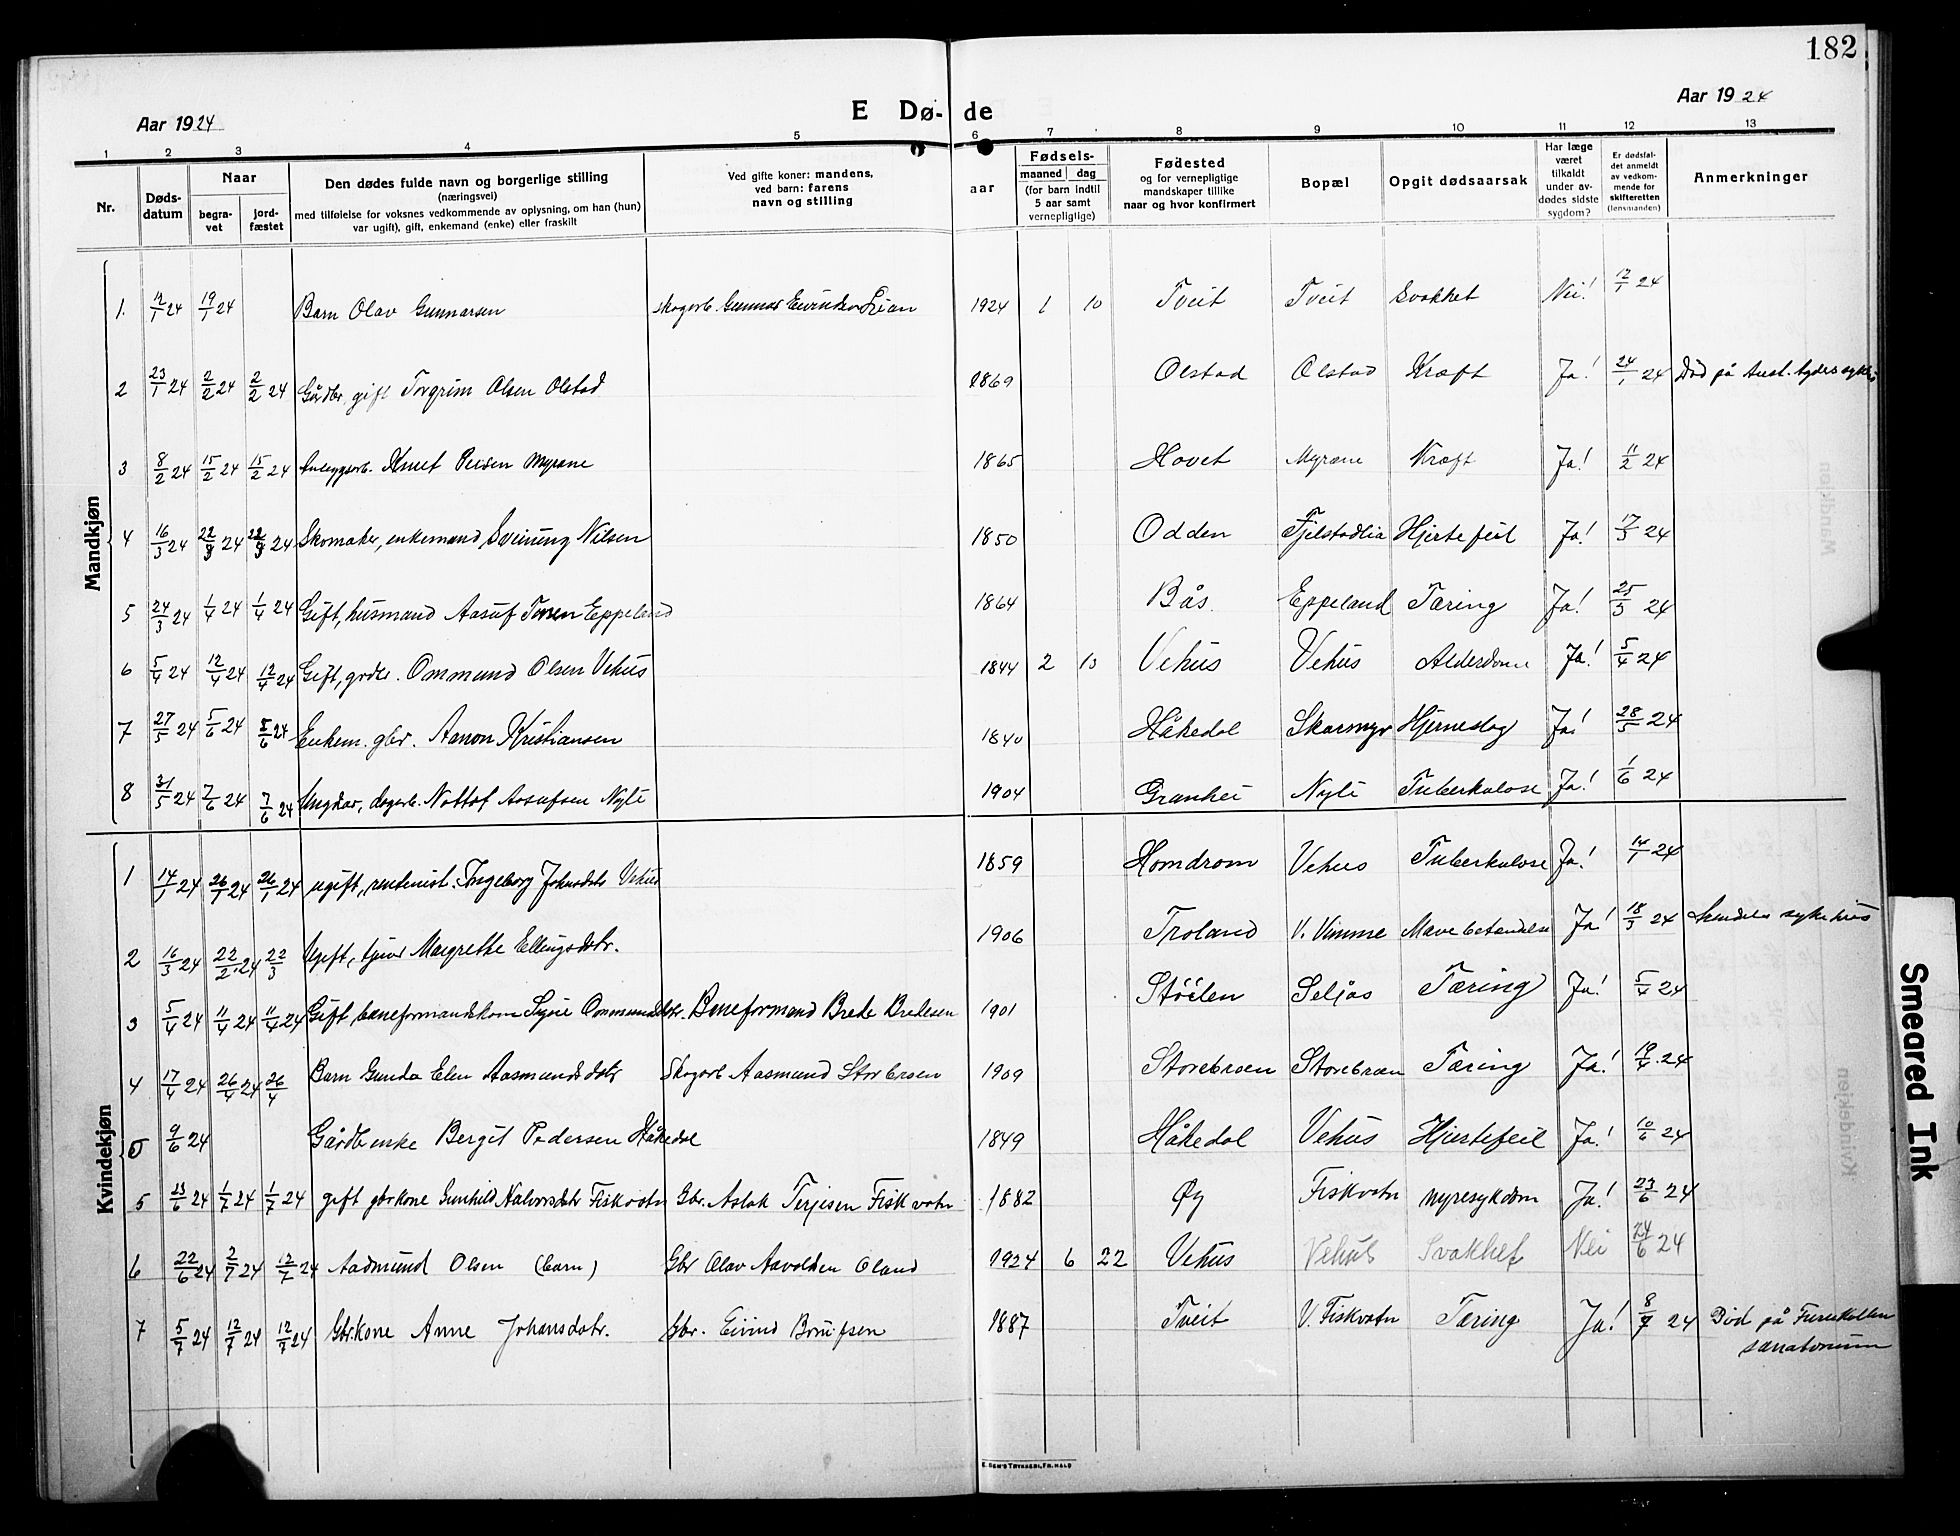 182
Aar 1924 E Dø- de Aar 1924
1 2 3 4 5 6 7 8 9 10 11 12 13
Nr.
Døds-
datum
Naar
begra-
vet
jord-
fæstet
Den dødes fulde navn og borgerlige stilling
(næringsvei)
med tilføielse for voksnes vedkommende av oplysning, om han (hun)
var ugift), gift, enkemand (enke) eller fraskilt
Ved gifte koner: mandens,
ved barn: farens
navn og stilling
aar
Fødsels-
maaned dag
(for barn indtil
5 aar samt
vernepligtige)
Fødested
og for vernepligtige
mandskaper tillike
naar og hvor konfirmert
Bopæl
Opgit dødsaarsak
Har læge
været
tilkaldt
under av-
dødes sidste
sygdom?
Er dødsfal-
det anmeldt
av vedkom-
mende for
skifteretten
(lensmanden)
Anmerkninger
Mandkjøn
1. 12/1 24 19/1 24 Barn Olav Gunnarsen Skogarb. Gunnar Eivindsen Lian 1924 1 10 Tveit Tveit Svakhet Nei! 12/1 24
2 23/1 24 2/2 24 2/2 24 Gårdbr. gift Torgrim Olsen Olstad 1869 Olstad Olstad Kræft Ja! 24/1 24 Død på Aust-Agder sykeh
3 8/2 24 15/2 24 15/2 24 Knut Myrane 1865 Hovet Myrane Kræft Ja! 11/2 24
4 16/3 24 22/3 24 22/3 24 Skomaker, enkemand Sveinung Nilsen 1850 Odden Fjelstadlia Hjertefeil Ja! 17/3 24
5 24/3 24 1/4 24 1/4 24 Gift, husmand Aasuf Eppeland 1864 Bås. Eppeland Tæring Ja! 25/3 24
6 5/4 24 12/4 24 12/4 24 Gift, grdbr. Ommund Olsen Vehus 1844 2 13 Vehus Vehus Alderdom Ja! 5/4 24
7 27/5 24 5/6 24 5/6 24 Enkem. gbr. Aanon Kristiansen 1840 Håkedal Skarmyr Hjerneslag Ja! 28/5 24
8 31/5 24 7/6 24 7/6 24 Ungkar, dagarb. Nottof Aasufsen Nyli 1904 Granhei Nyli Tuberkulose Ja! 1/6 24
Kvindekjøn
1 14/1 24 26/1 24 26/1 24 ugift, rentenist. Ingeborg Johnsdotr Vehus 1859 Homdrom Vehus Tuberkulose Ja! 14/1 24
2 16/3 24 22/2 24 22/3 Ugift, Margrethe Ellingsdotr. 1906 Troland V. Vimme Mavebetændelse Ja! 18/3 24 Arendals sykehus
3 5/4 24 11/4 24 11/4 24 Gift baneformandskone Signe Ommundsdtr. Baneformand Brede Bredesen 1901 Støilen Seljås Tæring Ja! 5/4 24
4 17/4 24 26/4 24 26/4 Barn Gunda Elen Aasmundsdotr Skogarb Aasmund Storbrøen 1909 Storebroen Storebroen Tæring Ja! 19/4 24
5 9/6 24 Gårdb enke Bergit Pedersen Håkedal 1849 Håkedal Vehus Hjertefeil Ja! 10/6 24
5 23/6 24 1/7 24 1/7 24 gift gbrkone Gunhild Halvorsdotr Fiskvatn Gbr. Aslak Terjesen Fiskvatn 1882 Øy Fiskvatn nyresykdom Ja! 23/6 24
6 22/6 24 2/7 24 12/7 24 Aadmund Olsen (barn) Gbr Olav Aavoldsen Oland 1924 6 22 Vehus Vehus Svakhet Nei 24/6 24
7 5/7 24 12/7 24 12/7 24 Gbr.kone Anne Johansdotr. Gbr. Eivind Brruifsen 1887 Tveit V. Fiskvatn Tæring Ja! 8/7 24 Død på Furukollen
sanatorium
Smeared Ink